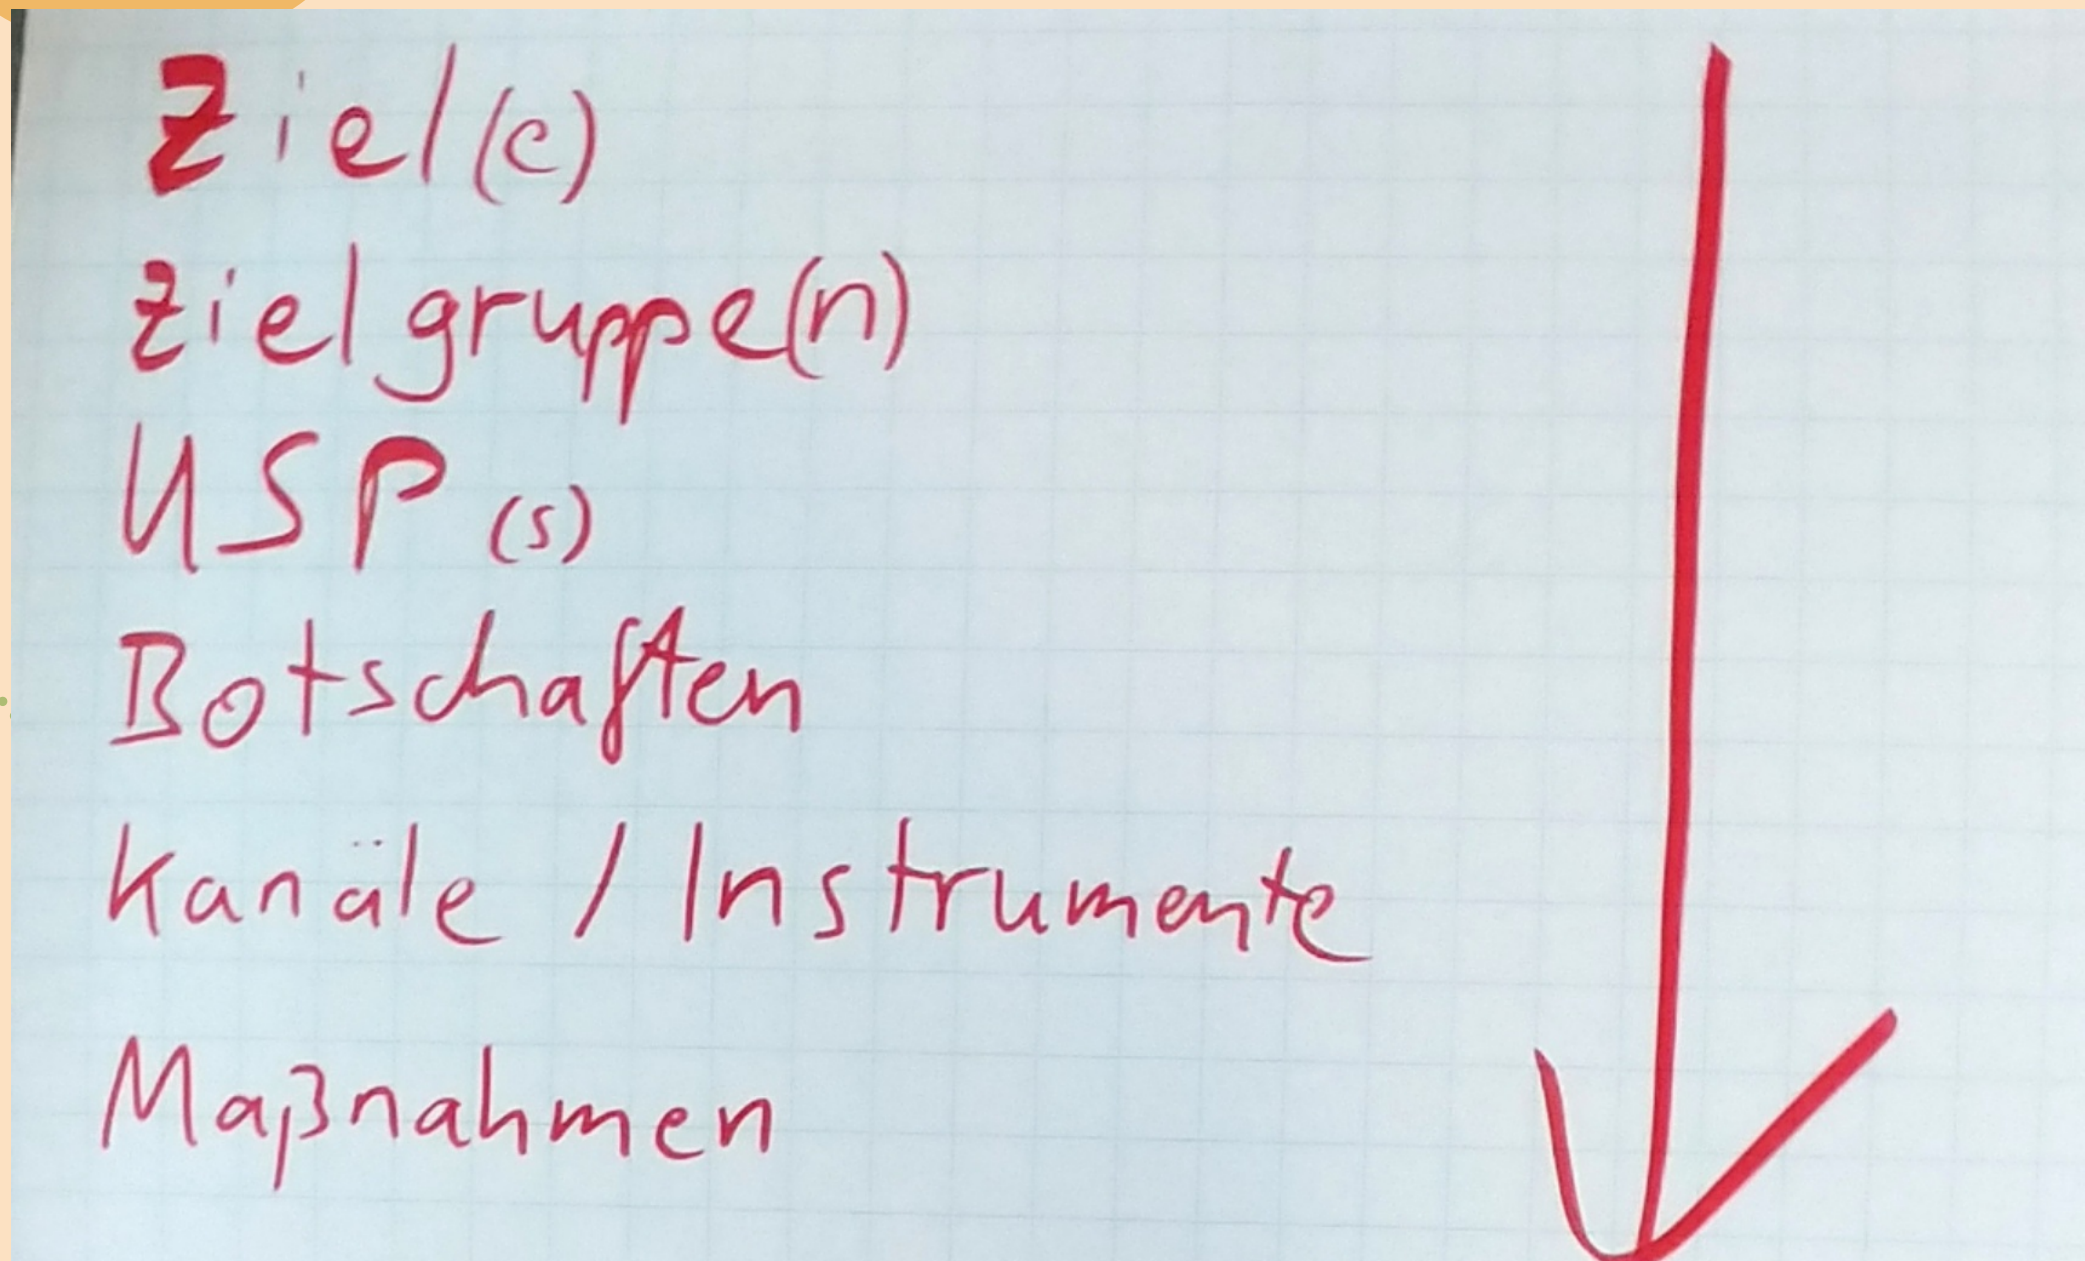 Ziel(e)
Zielgruppe(n)
USP (s)
Botschaften
Kanäle / Instrumente
Maßnahmen